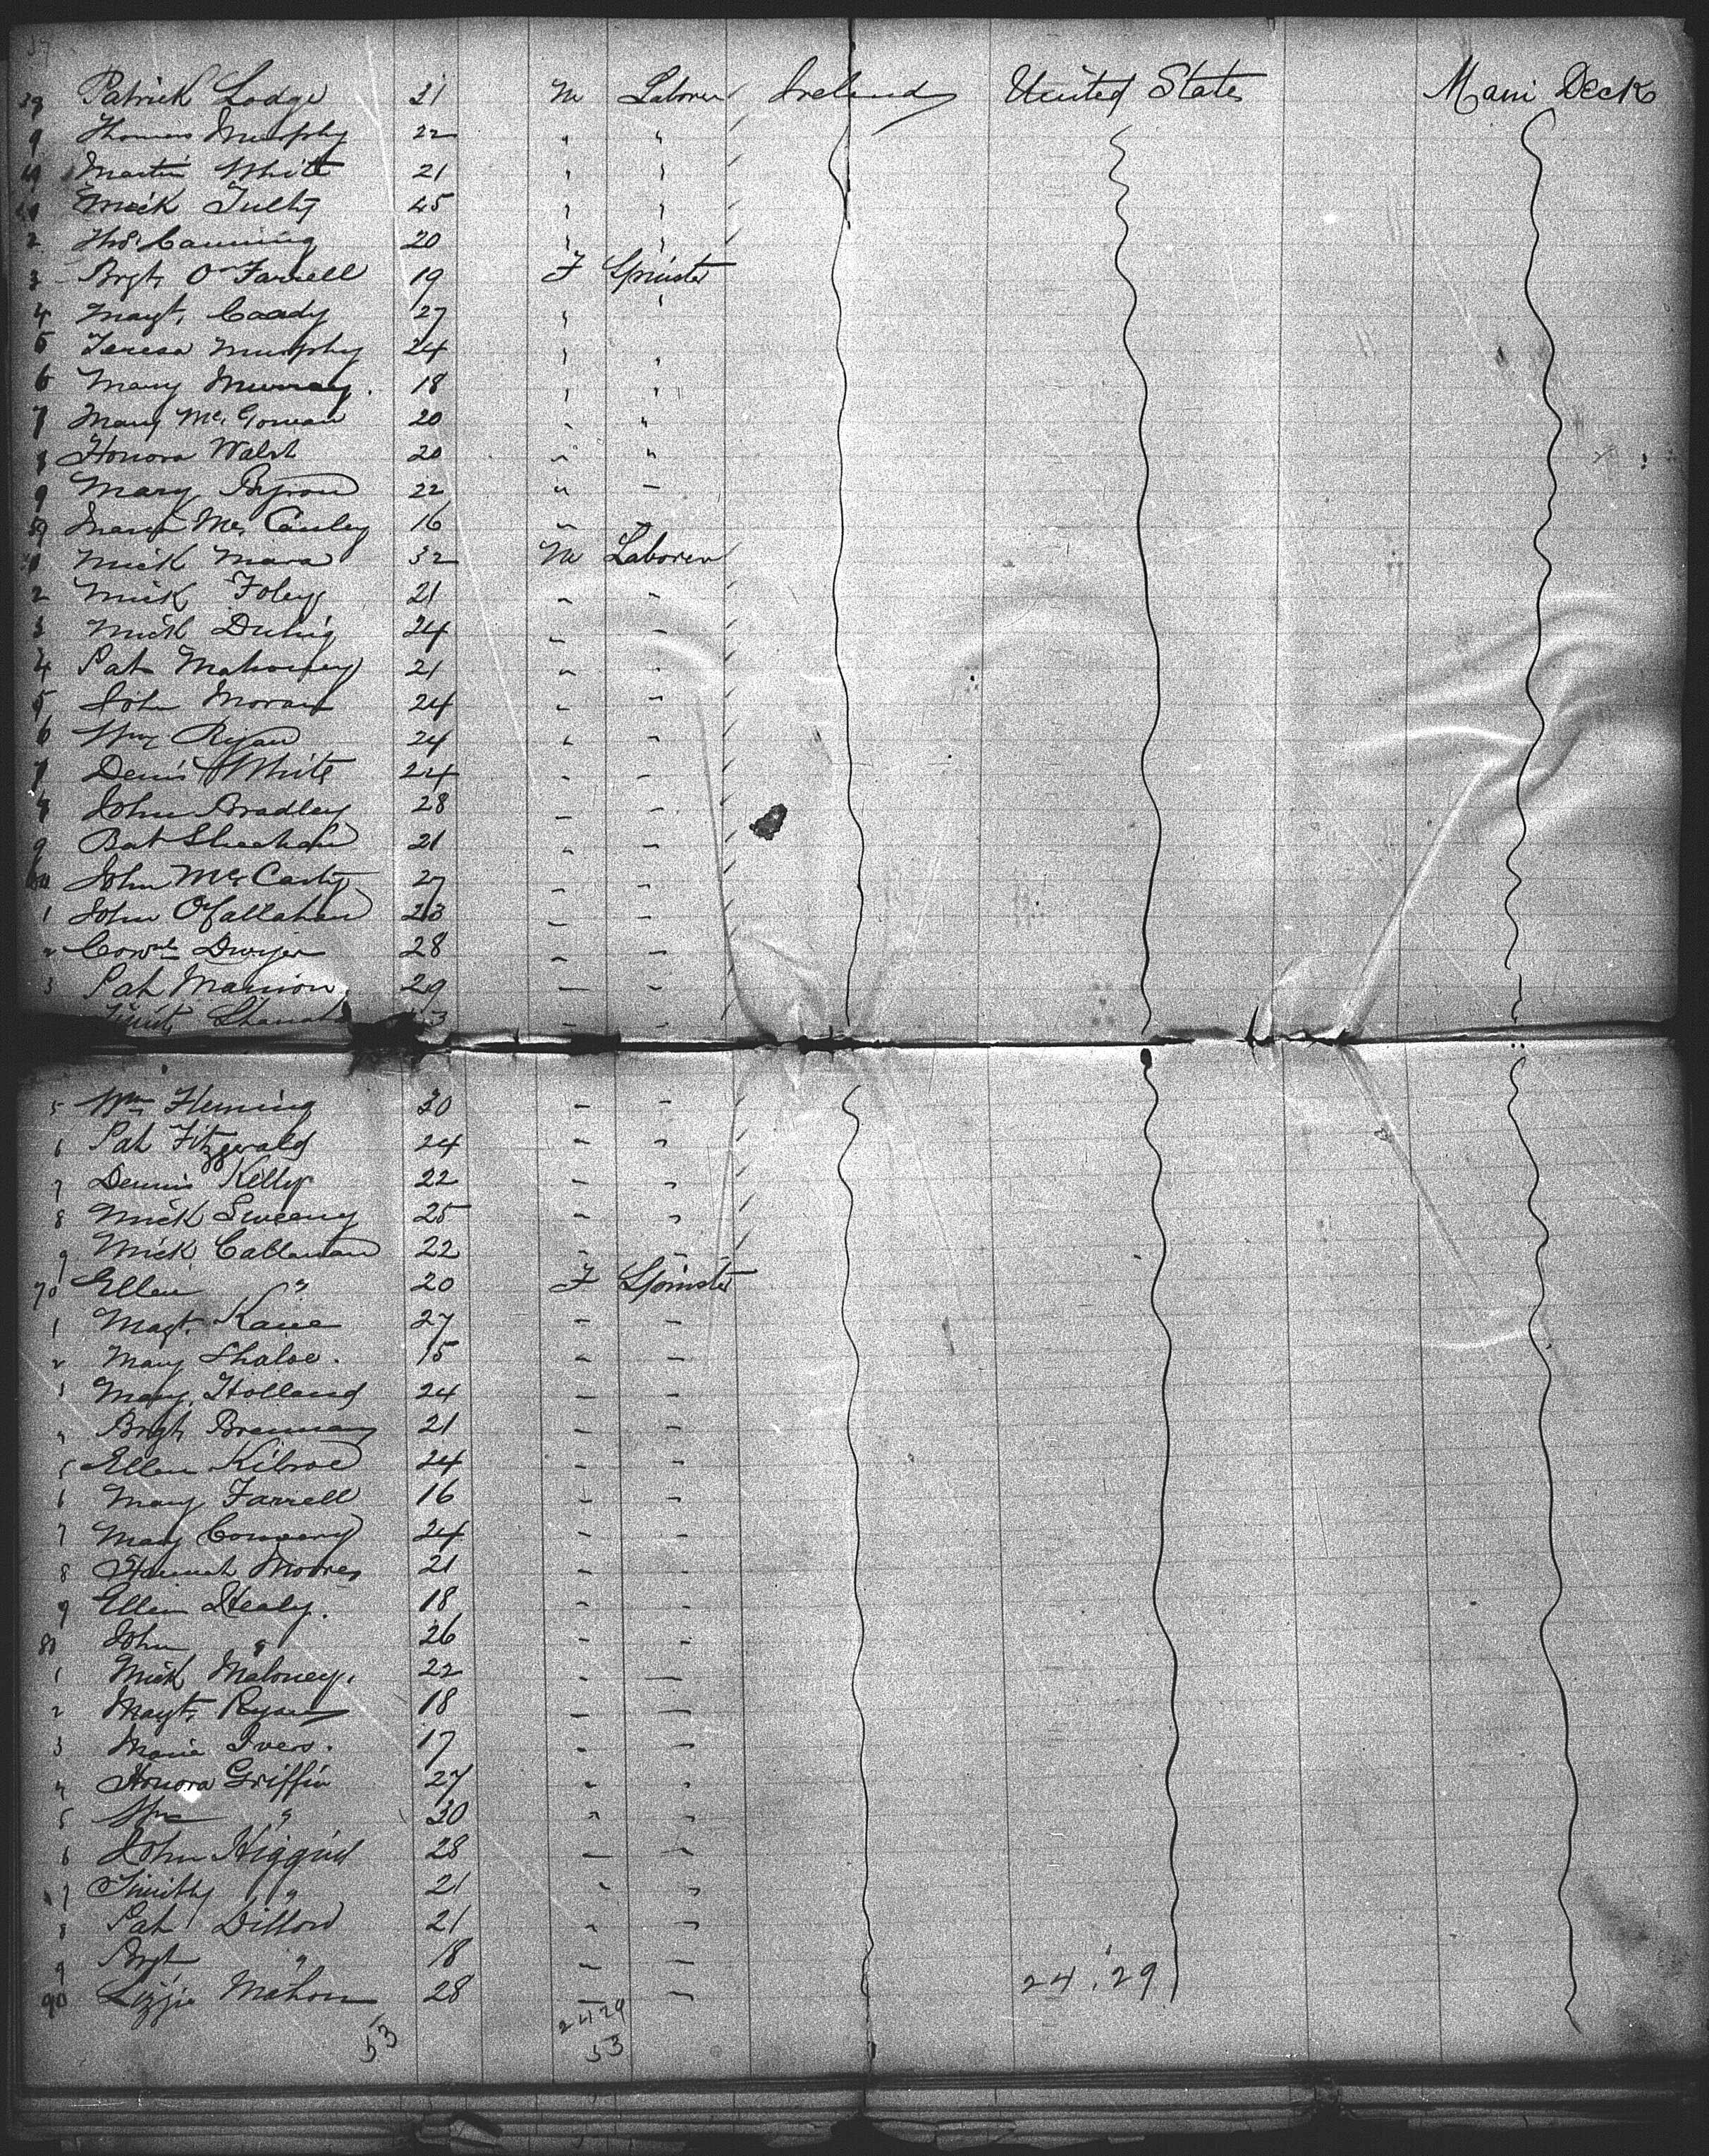 39 Patrick Lodge 21 M Laborer Ireland United States Main Deck
9 Thomas Murphy 22 " "
Martin White 21 " "
Mick Tully 45 " "
2 Thos. Canning 20 " "
3 Brgt. O'Farrell 19 F Spinster
4 Magt. Coady 27 " "
5 Teresa Murphy 24 " "
6 Mary Murray. 18 " "
7 Mary McGowan 20 " "
8 Honora Walsh 20 " "
9 Mary Byron 22 " "
Mary Mc Cauley 16 "
1 Mick Mara 32 M Laborer
2 Mick Foley 21 " "
3 Mick Duhig 24 " "
4 Pat Mahoney 21 " "
5 John Moran 24 " "
6 Wm Ryan 24 " "
7 Denis White 24 " "
8 John Bradley 28 " "
9 Bat Sheehan 21 " "
60 John McCarty 27 " "
1 John O'Callahan 23 " "
2 Dwyer 28 " "
3 Pat Mannion. 29 " "
" "
5 Wm Fleming 30 " "
6 Pat Fitzgerald 24 " "
7 Dennis Kelly 22 " "
8 Mick Sweeny 25 " "
9 Mick Callanan 22 " "
70 Ellen " 20 F Spinster
1 Magt. Kane 27 " "
2 Mary 15 " "
3 Mary Holland 24 " "
4 Brgt. Brennan 21 " "
5 Ellen Kilroe 24 " "
6 Mary Farrell 16 " "
7 Mary 24 " "
8 Hannah Moores 21 " "
9 Ellen Healy. 18 " "
80 John " 26 " "
1 Mick Maloney. 22 " "
2 Magt. Ryan 18 " "
3 Maria Ivers. 17 " "
4 Honora Griffin 27 " "
5 Wm " 30 " "
6 John Higgins 28 " "
7 Timithy " 21 " "
8 Pat Dillon 21 " "
9 Brgt " 18 " "
90 Lizzie Mahon 28 " " 24.29
53 24 29
53